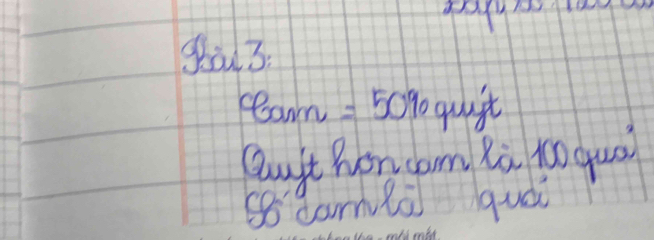 Bài 3:
Cam = 50% quýt
Quýt hơn cam là 100 quả
Số cam là quả